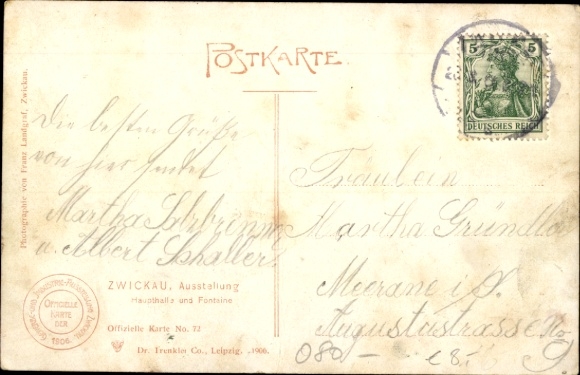 POSTKARTE.
5 5
DEUTSCHES REICH
Photographie von Franz Landgraf, Zwickau.
Die besten Grüße
von hier sendet
Martha
u. Albert Schaller.
Fräulein
Martha
Meerane i/S.
Augustusstrasse
ZWICKAU, Ausstellung
Haupthalle und Fontaine
OFFICIELLE
KARTE
DER
1906.
Offizielle Karte No. 72
Dr. Trenkler Co., Leipzig. 1906.
080 -